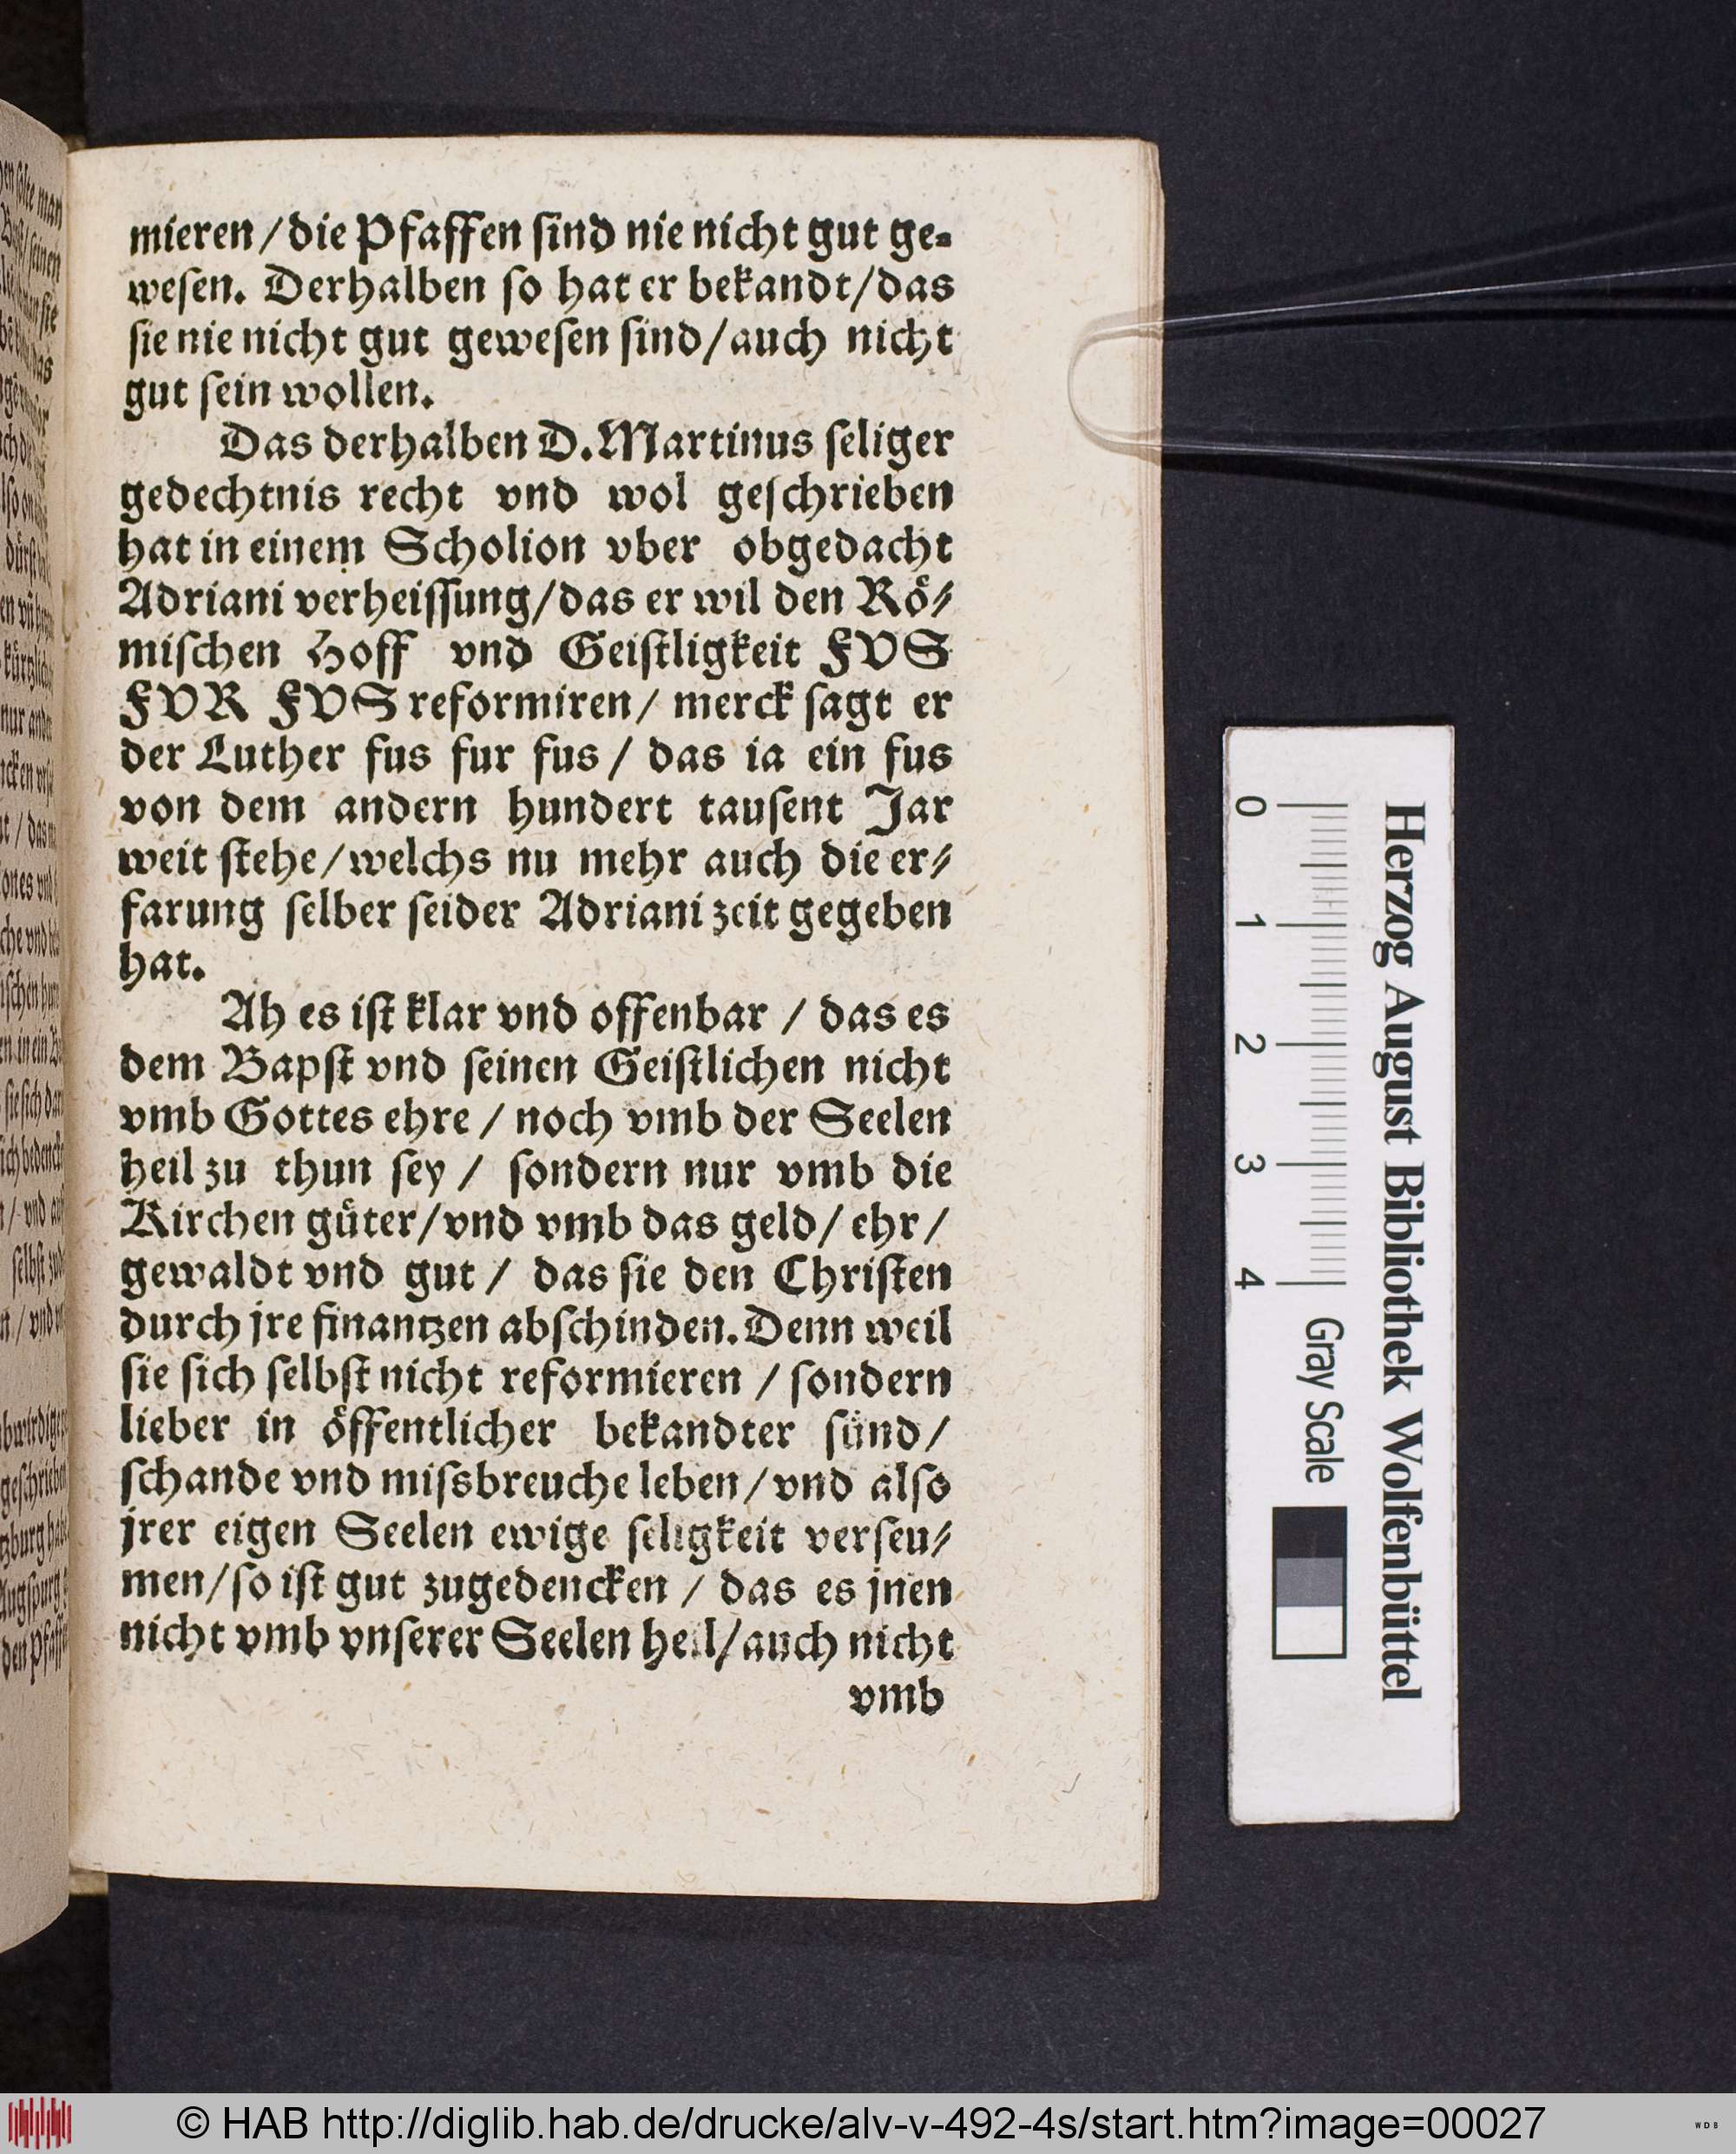 mieren / die Pfaffen ſind nie nicht gut ge=
weſen. Derhalben ſo hat er bekandt / das
ſie nie nicht gut geweſen ſind / auch nicht
gut ſein wollen.
Das derhalben D. Martinus ſeliger
gedechtnis recht vnd wol geſchrieben
hat in einem Scholion vber obgedacht
Adriani verheiſſung / das er wil den Roͤ⸗
miſchen Hoff vnd Geiſtligkeit FVS
FVR FVS reformiren / merck ſagt er
der Luther fus fur fus / das ia ein fus
von dem andern hundert tauſent Jar
weit ſtehe / welchs nu mehr auch die er⸗
farung ſelber ſeider Adriani zeit gegeben
hat.
Ah es iſt klar vnd offenbar / das es
dem Bapſt vnd ſeinen Geiſtlichen nicht
vmb Gottes ehre / noch vmb der Seelen
heil zu thun ſey / ſondern nur vmb die
Kirchen guͤter / vnd vmb das geld / ehr /
gewaldt vnd gut / das ſie den Chriſten
durch jre finantzen abſchinden. Denn weil
ſie ſich ſelbſt nicht reformieren / ſondern
lieber in oͤffentlicher bekandter ſuͤnd /
ſchande vnd miſsbreuche leben / vnd alſo
jrer eigen Seelen ewige ſeligkeit verſeu⸗
men / ſo iſt gut zugedencken / das es jnen
nicht vmb vnſerer Seelen heil / auch nicht
vmb
Herzog August Bibliothek Wolfenbüttel
0 1 2 3 4 Gray Scale
© HAB http://diglib.hab.de/drucke/alv-v-492-4s/start.htm?image=00027
WDB